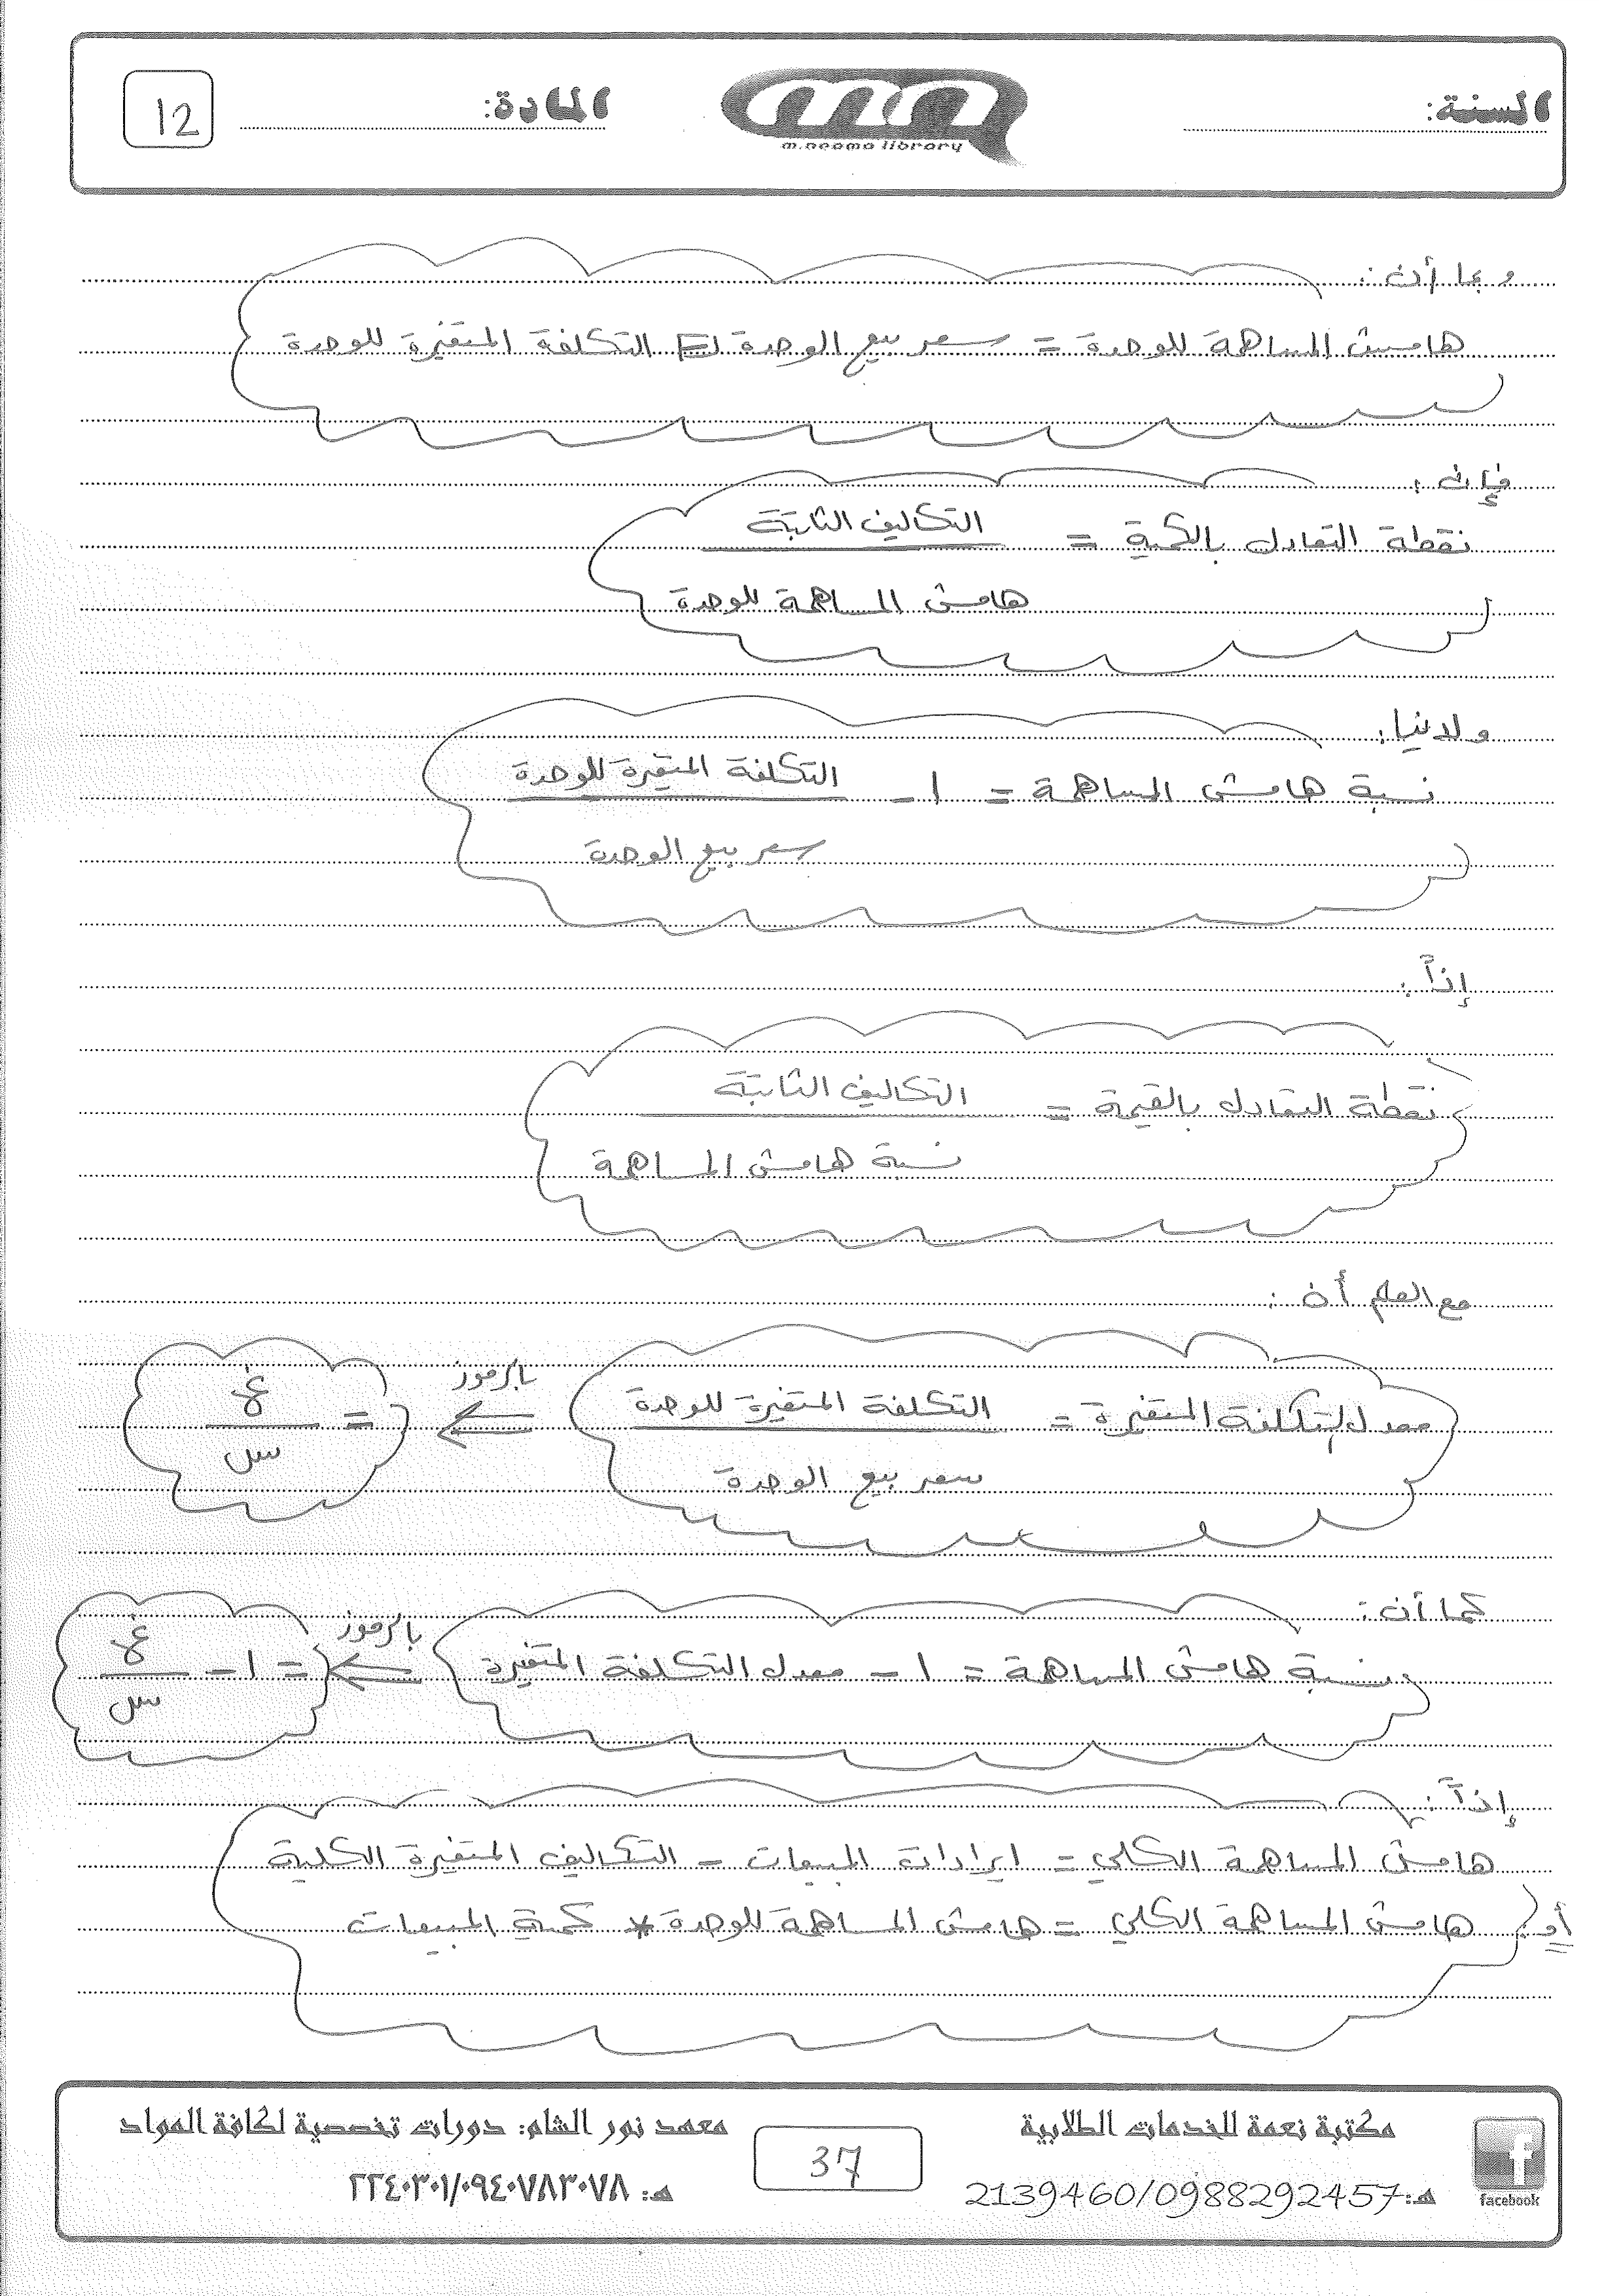 السنة:
m.neama library
المادة:
12
وبما أن:
هامش المساهمة للوحدة = سعر بيع الوحدة - التكلفة المتغيرة للوحدة
فإن:
نقطة التعادل بالكمية = التكاليف الثابتة
هامش المساهمة للوحدة
ولدينا:
نسبة هامش المساهمة = 1 - التكلفة المتغيرة للوحدة
سعر بيع الوحدة
إذاً:
نقطة التعادل بالقيمة = التكاليف الثابتة
نسبة هامش المساهمة
مع العلم أن:
معدل التكلفة المتغيرة = التكلفة المتغيرة للوحدة ⇐ بالرموز = غ
سعر بيع الوحدة س
كما أن:
نسبة هامش المساهمة = 1 - معدل التكلفة المتغيرة ⇐ بالرموز = 1 - غ
س
إذاً:
هامش المساهمة الكلي = ايرادات المبيعات - التكاليف المتغيرة الكلية
أو هامش المساهمة الكلي = هامش المساهمة للوحدة * كمية المبيعات
مكتبة نعمة للخدمات الطلابية
هـ: 2139460/0988292457
facebook
37
معهد نور الشام: دورات تخصصية لكافة المواد
هـ: ٢٢٤٠٣٠١/٠٩٤٠٧٨٣٠٧٨